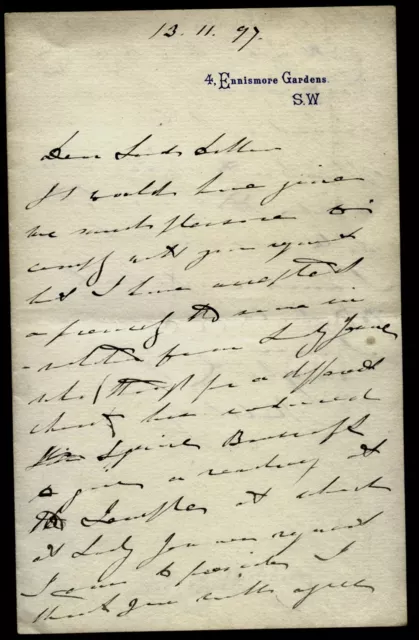 13. 11. 97.
4, Ennismore Gardens.
S.W
Dear
It would have given
me much pleasure to
comply with your request
but I have accepted
a precisely the same in
-vitation from Lady Jeune
who (though for a different
charity) has induced
Squire Bancroft
to give a reading at
the at which
at Lady Jeune's request
I am to preside. I
think you will agree